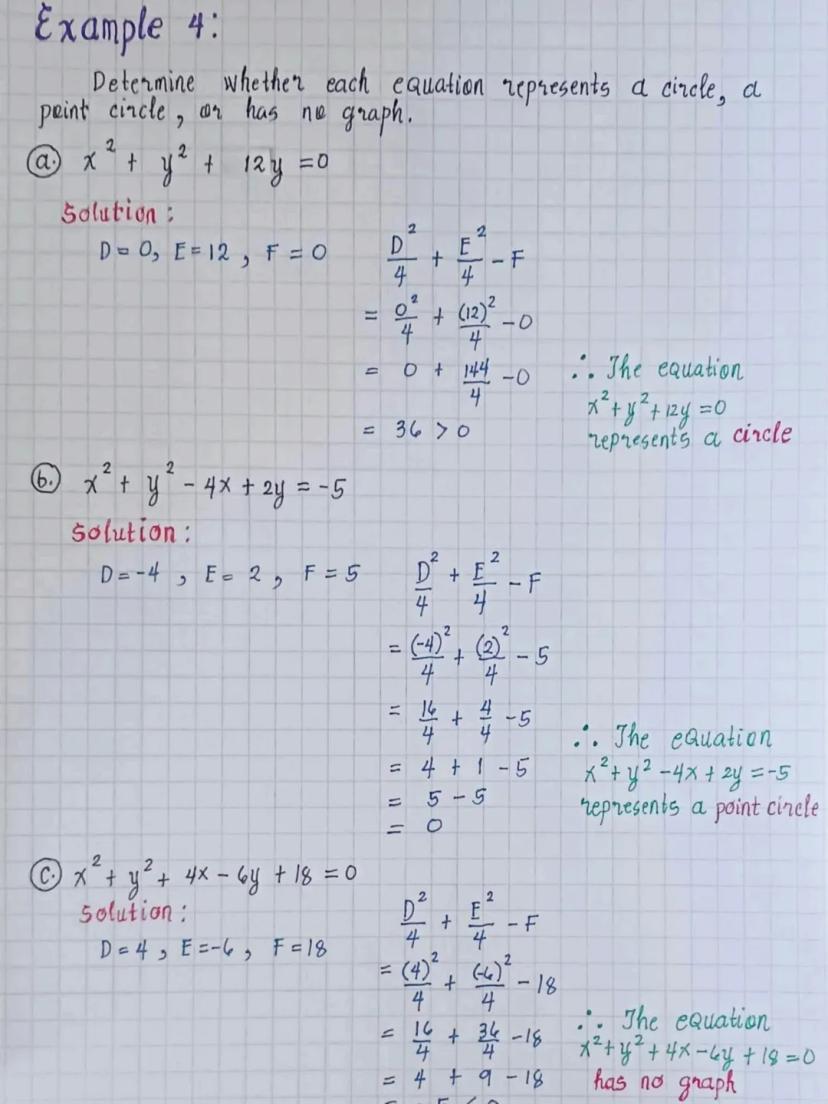 Example 4:
Determine whether each equation represents a circle, a
point circle, or has no graph.
a. x² + y² + 12y = 0
Solution:
D = 0, E = 12, F = 0
D²/4 + E²/4 − F
= 0²/4 + (12)²/4 − 0
= 0 + 144/4 − 0
= 36 > 0
∴ The equation
x² + y² + 12y = 0
represents a circle
b. x² + y² − 4x + 2y = −5
Solution:
D = −4, E = 2, F = 5
D²/4 + E²/4 − F
= (−4)²/4 + (2)²/4 − 5
= 16/4 + 4/4 − 5
= 4 + 1 − 5
= 5 − 5
= 0
∴ The equation
x² + y² − 4x + 2y = −5
represents a point circle
c. x² + y² + 4x − 6y + 18 = 0
Solution:
D = 4, E = −6, F = 18
D²/4 + E²/4 − F
= (4)²/4 + (−6)²/4 − 18
= 16/4 + 36/4 − 18
= 4 + 9 − 18
∴ The equation
x² + y² + 4x − 6y + 18 = 0
has no graph